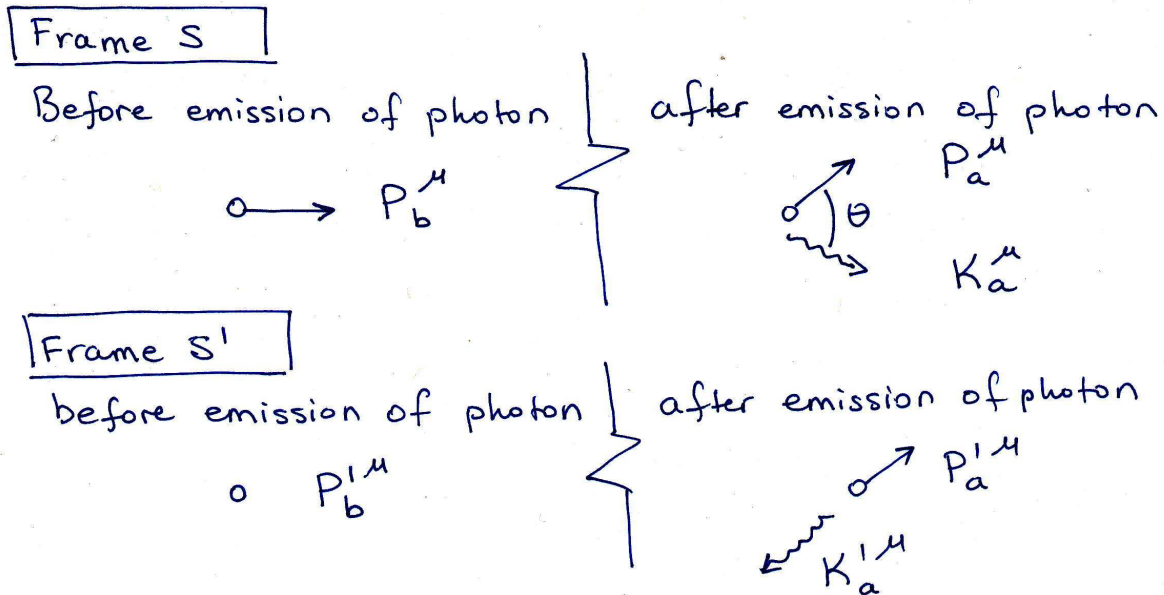 Frame S
Before emission of photon
after emission of photon
P_b^μ
P_a^μ
θ
K_a^μ
Frame S'
before emission of photon
after emission of photon
P_b'^μ
P_a'^μ
K_a'^μ